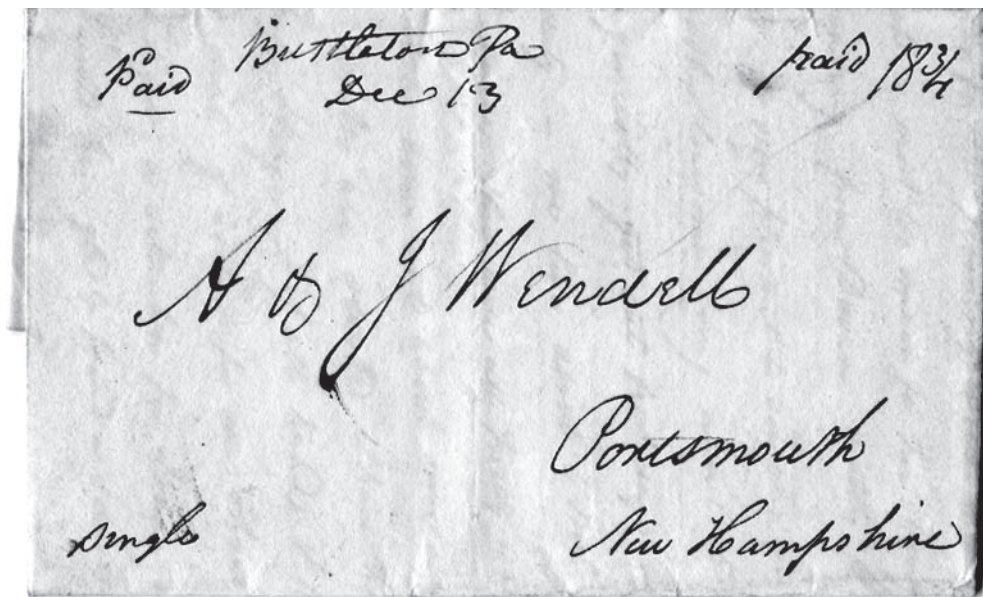 Paid
Bustleton Pa
Dec 13
paid 18 3/4
A & J Wendell
Portsmouth
New Hampshire
single